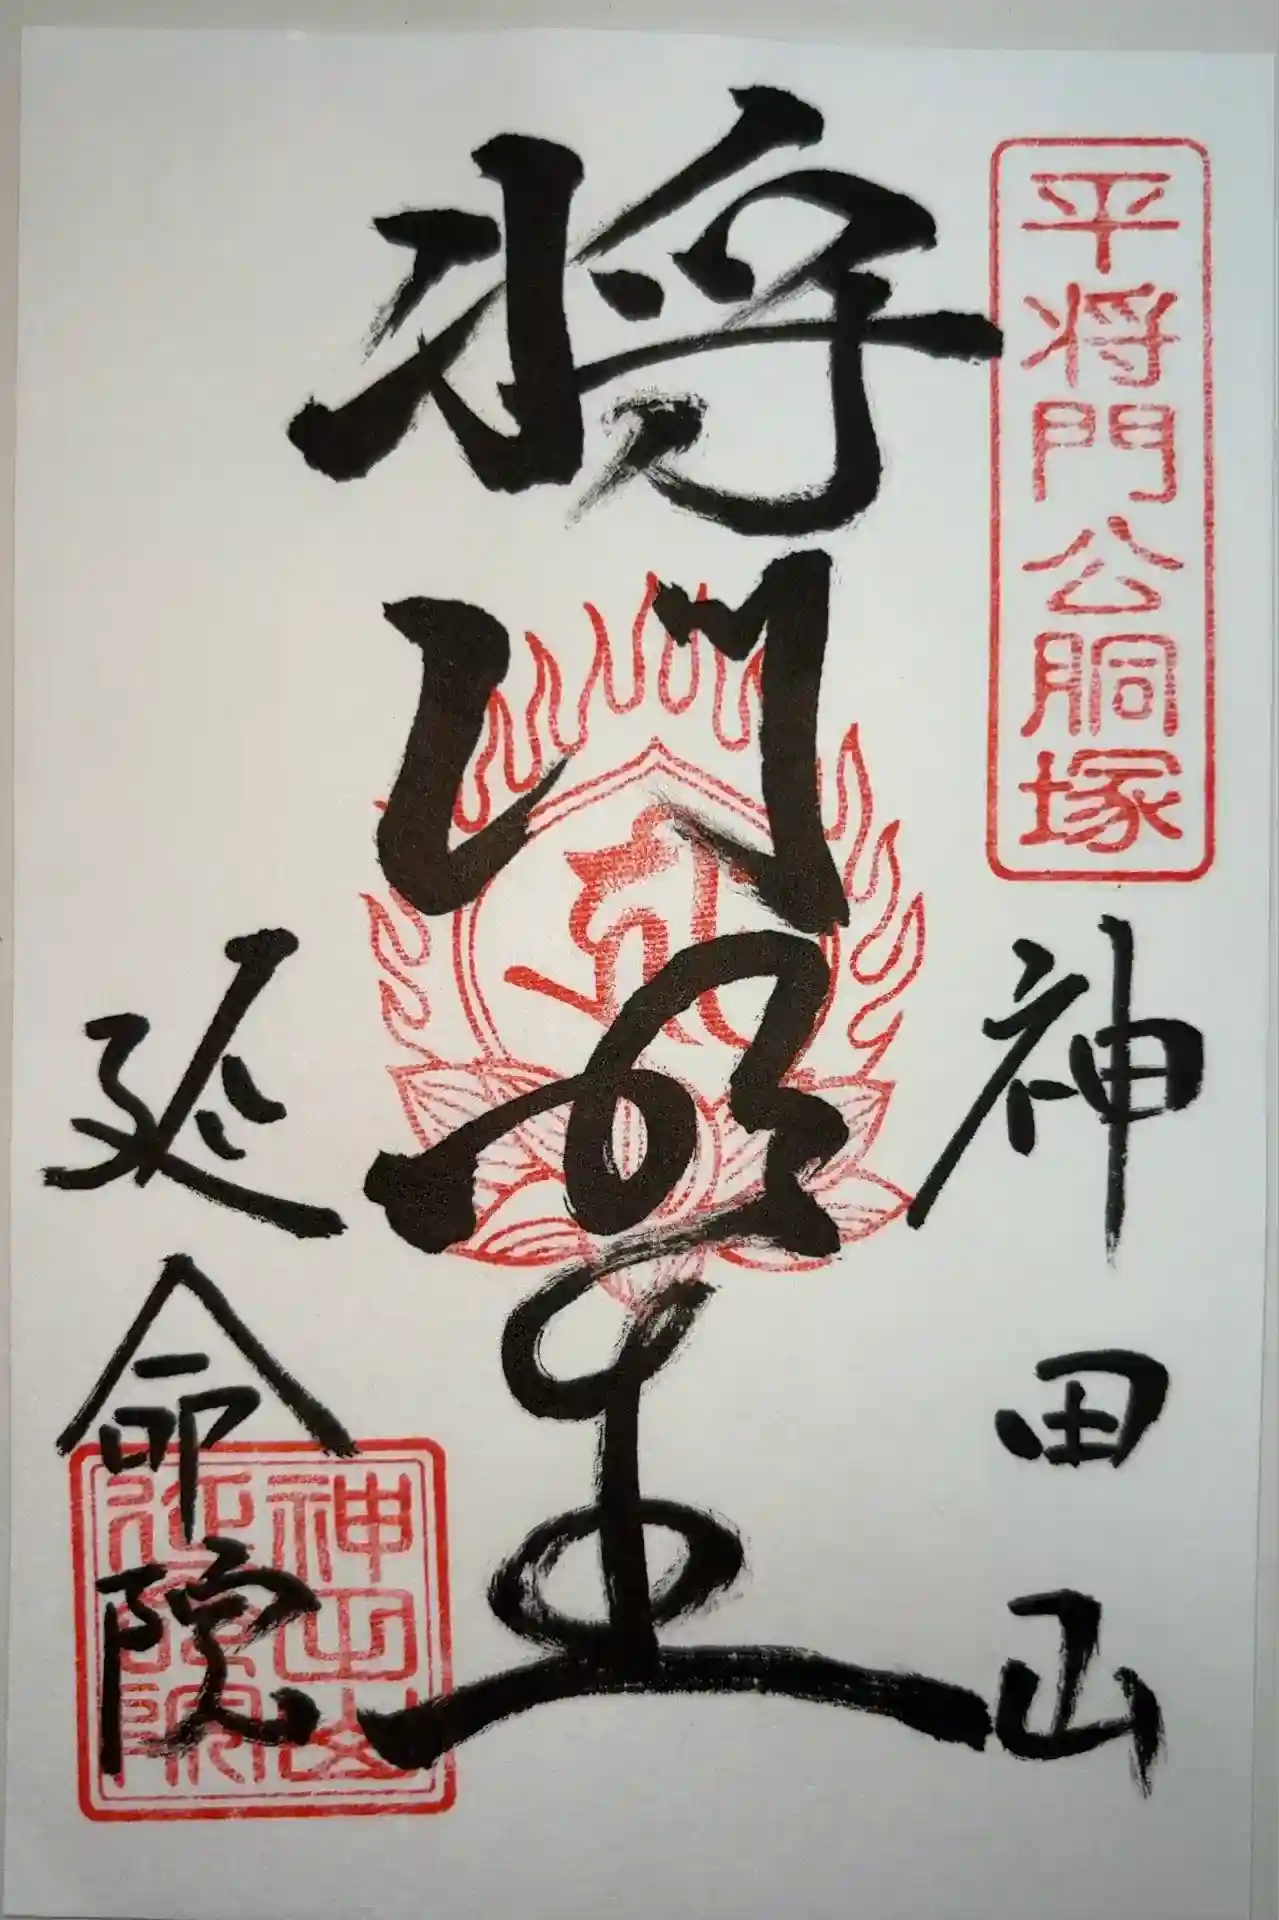 平将門公胴塚
神田山
将門明王
延命院
神田山
延命院